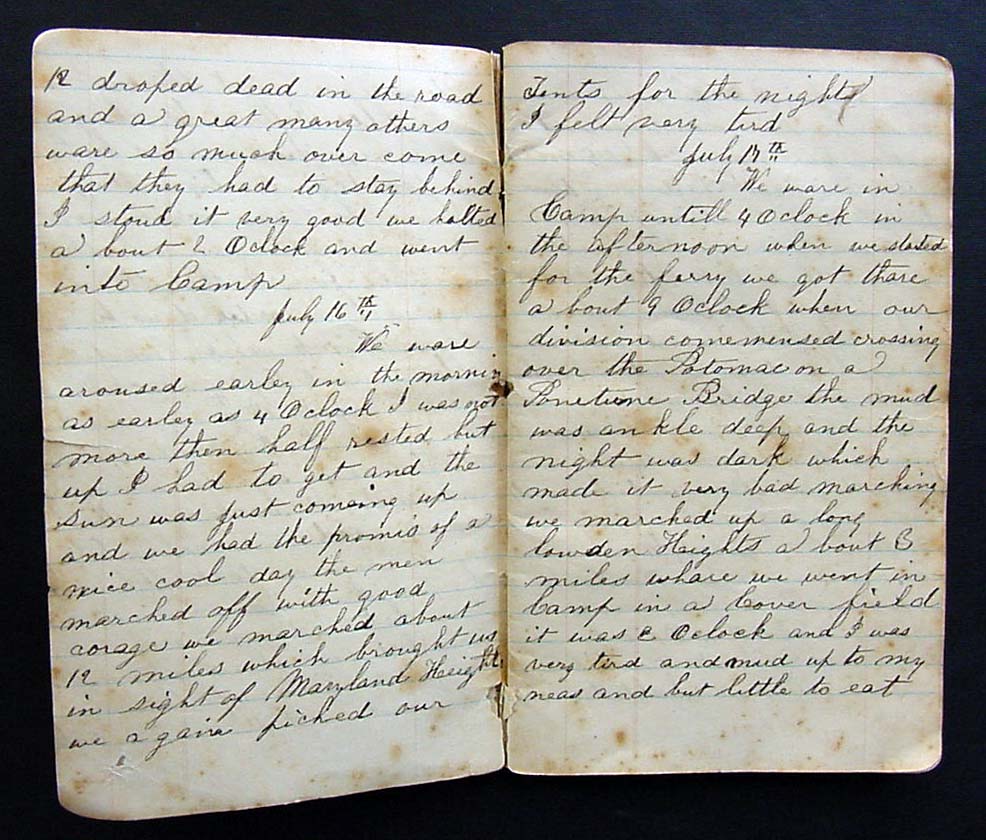 12 droped dead in the road
and a great many others
ware so much over come
that they had to stay behind
I stoud it very good we halted
a bout 2 Oclock and went
into Camp
July 16th
We ware
aroused earley in the mornin
as earley as 4 Oclock I was not
more then half rested but
up I had to get and the
sun was just comeing up
and we had the promis of a
nice cool day the men
marched off with good
corage we marched about
12 miles which brought us
in sight of Maryland Heights
we again piched our
Tents for the night
I felt very tird
July 17th
We ware in
Camp untill 4 Oclock in
the afternoon when we started
for the ferry we got thare
a bout 9 Oclock when our
division comemensed crossing
over the Potomac on a
Ponetune Bridge the mud
was ankle deep and the
night was dark which
made it very bad marching
we marched up a long
lowden Heights a bout 3
miles whare we went in
Camp in a Cover field
it was 2 Oclock and I was
very tird and mud up to my
neas and but little to eat